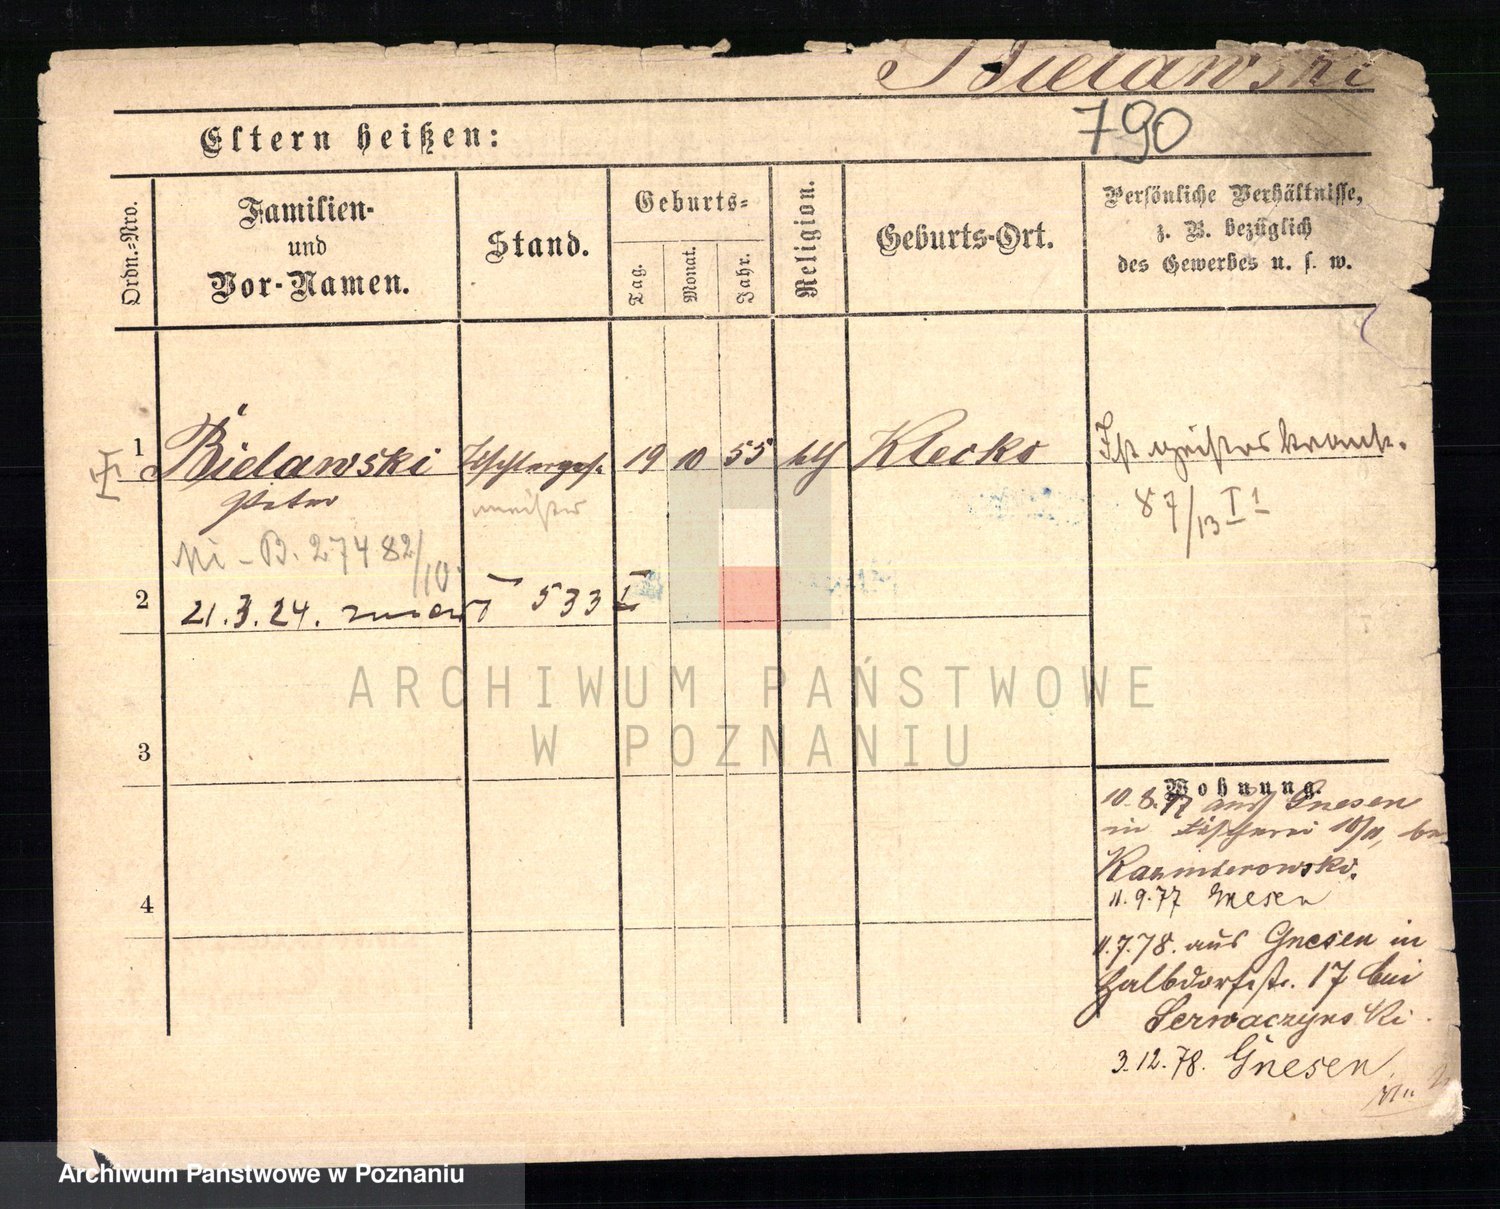 Bielawski
790
Eltern heißen:
Ordn.-Nro.
Familien-
und
Vor-Namen.
Stand.
Geburts-
Tag.
Monat.
Jahr.
Religion.
Geburts-Ort.
Persönliche Verhältnisse,
z. B. bezüglich
des Gewerbes u. s. w.
1
Bielawski
Peter
Tischlerges.
meister
19 10 55
kth
Klecko
Ist
87/13 I 1
Ni-B. 274 82/10
2
21.3.24. 533 I
ARCHIWUM PAŃSTWOWE
W POZNANIU
3
4
Wohnung.
10.8.77 aus Gnesen
in Fischerei 10/11, bei
Kazmierowski.
11.9.77 Gnesen
11.7.78. aus Gnesen in
Halbdorfstr. 17 bei
Serwaczynski.
3.12.78. Gnesen.
Archiwum Państwowe w Poznaniu